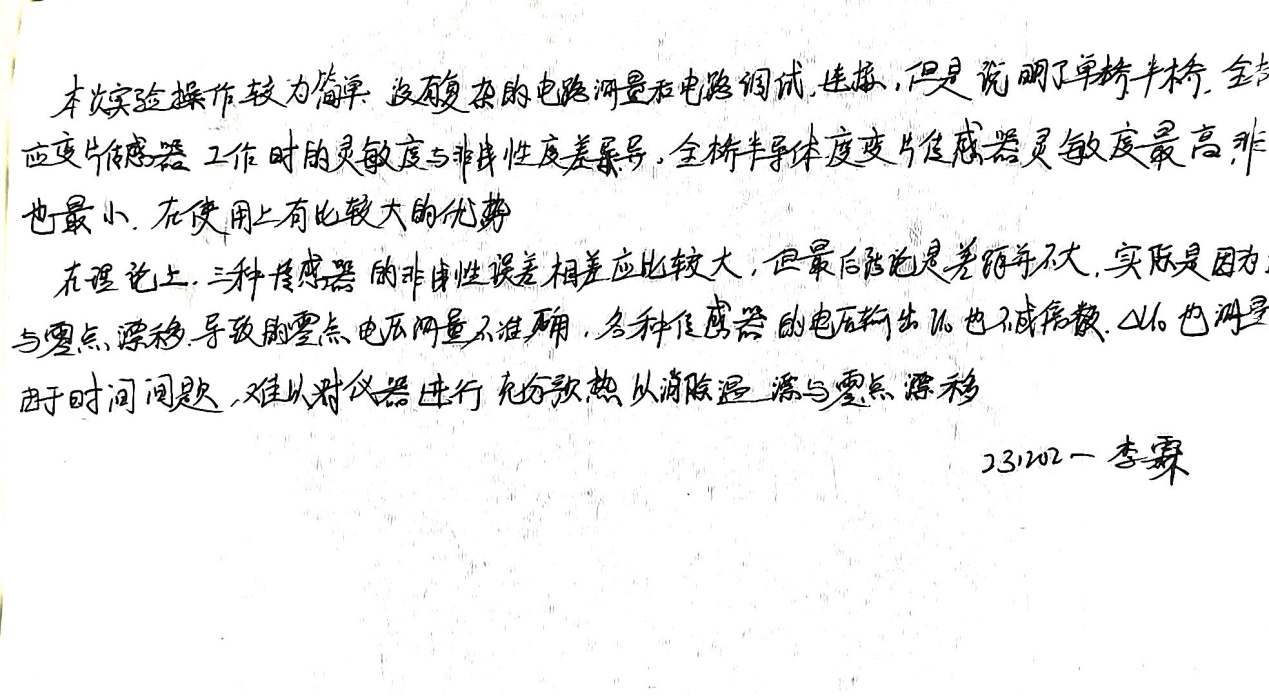 本次实验操作较为简单 没有复杂的电路测量和电路调试,连接,但是说明了单桥半桥.全
应变片传感器工作时的灵敏度与非线性度差异,全桥半导体应变片传感器灵敏度最高,非
也最小.在使用上有比较大的优势
在理论上.三种传感器的非线性误差相差应比较大,但最后结论是差距并不大,实际是因为
与零点漂移.导致的零点电压测量不准确,各种传感器的电压输出U₀也不成倍数.ΔU₀也测量
由于时间问题,难以对仪器进行充分预热以消除温漂与零点漂移
231202一李霖